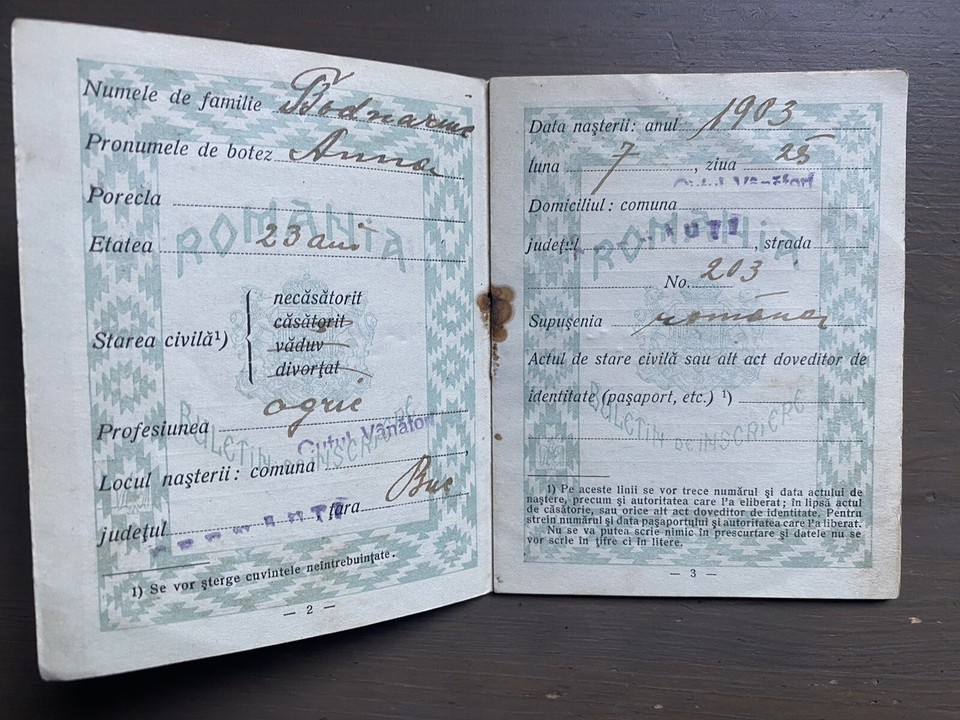 Numele de familie Bodnariuc
Pronumele de botez Anna
Porecla
Etatea 23 ani
Starea civilă¹)
necăsătorit
căsătorit
văduv
divorţat
Profesiunea agric
Locul naşterii: comuna Cuţul Vânători
judeţul ţara Buc
1) Se vor şterge cuvintele neîntrebuinţate.
— 2 —
ROMÂNIA
BULETIN DE INSCRIERE
Data naşterii: anul 1903
luna 7, ziua 25
Domiciliul: comuna
judeţul, strada
No. 203
Supuşenia română
Actul de stare civilă sau alt act doveditor de
identitate (paşaport, etc.) ¹)
1) Pe aceste linii se vor trece numărul şi data actului de
naştere, precum şi autoritatea care l'a eliberat; în lipsă actul
de căsătorie, sau orice alt act doveditor de identitate. Pentru
strein numărul şi data paşaportului şi autoritatea care l'a liberat.
Nu se va putea scrie nimic în prescurtare şi datele nu se
vor scrie în ţifre ci în litere.
— 3 —
ROMÂNIA
BULETIN DE INSCRIERE